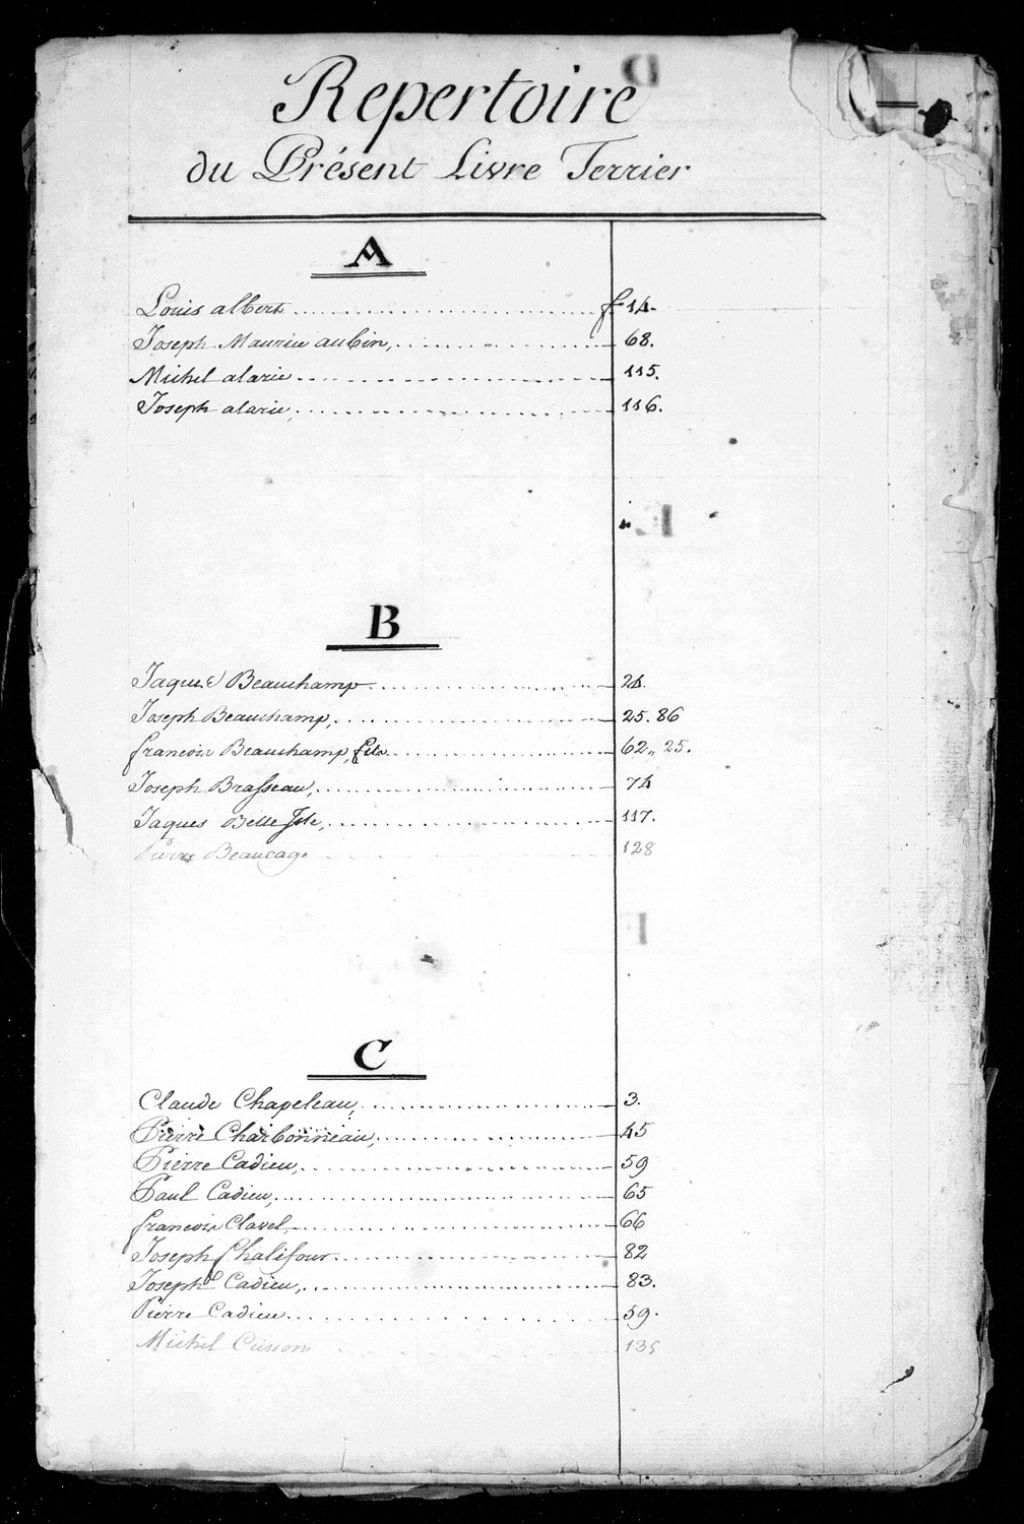 Repertoire
du Présent Livre Terrier
A
Louis albert ........ f 14.
Joseph Maurice aubin, ........ 68.
Michel alarie ........ 115.
Joseph alarie, ........ 116.
B
Jaques Beauchamp ........ 24.
Joseph Beauchamp, ........ 25. 86
francois Beauchamp, fils ........ 62,, 25.
Joseph Brasseau, ........ 74
Jaques Belle Isle, ........ 117.
Pierre Beaucage ........ 128
C
Claude Chapeleau, ........ 3.
Pierre Charbonneau, ........ 45
Pierre Cadieu, ........ 59
Paul Cadieu, ........ 65
francois Clavel, ........ 66
Joseph Chalifour ........ 82
Joseph Cadieu, ........ 83.
Pierre Cadieu ........ 59.
Michel Cusson ........ 135